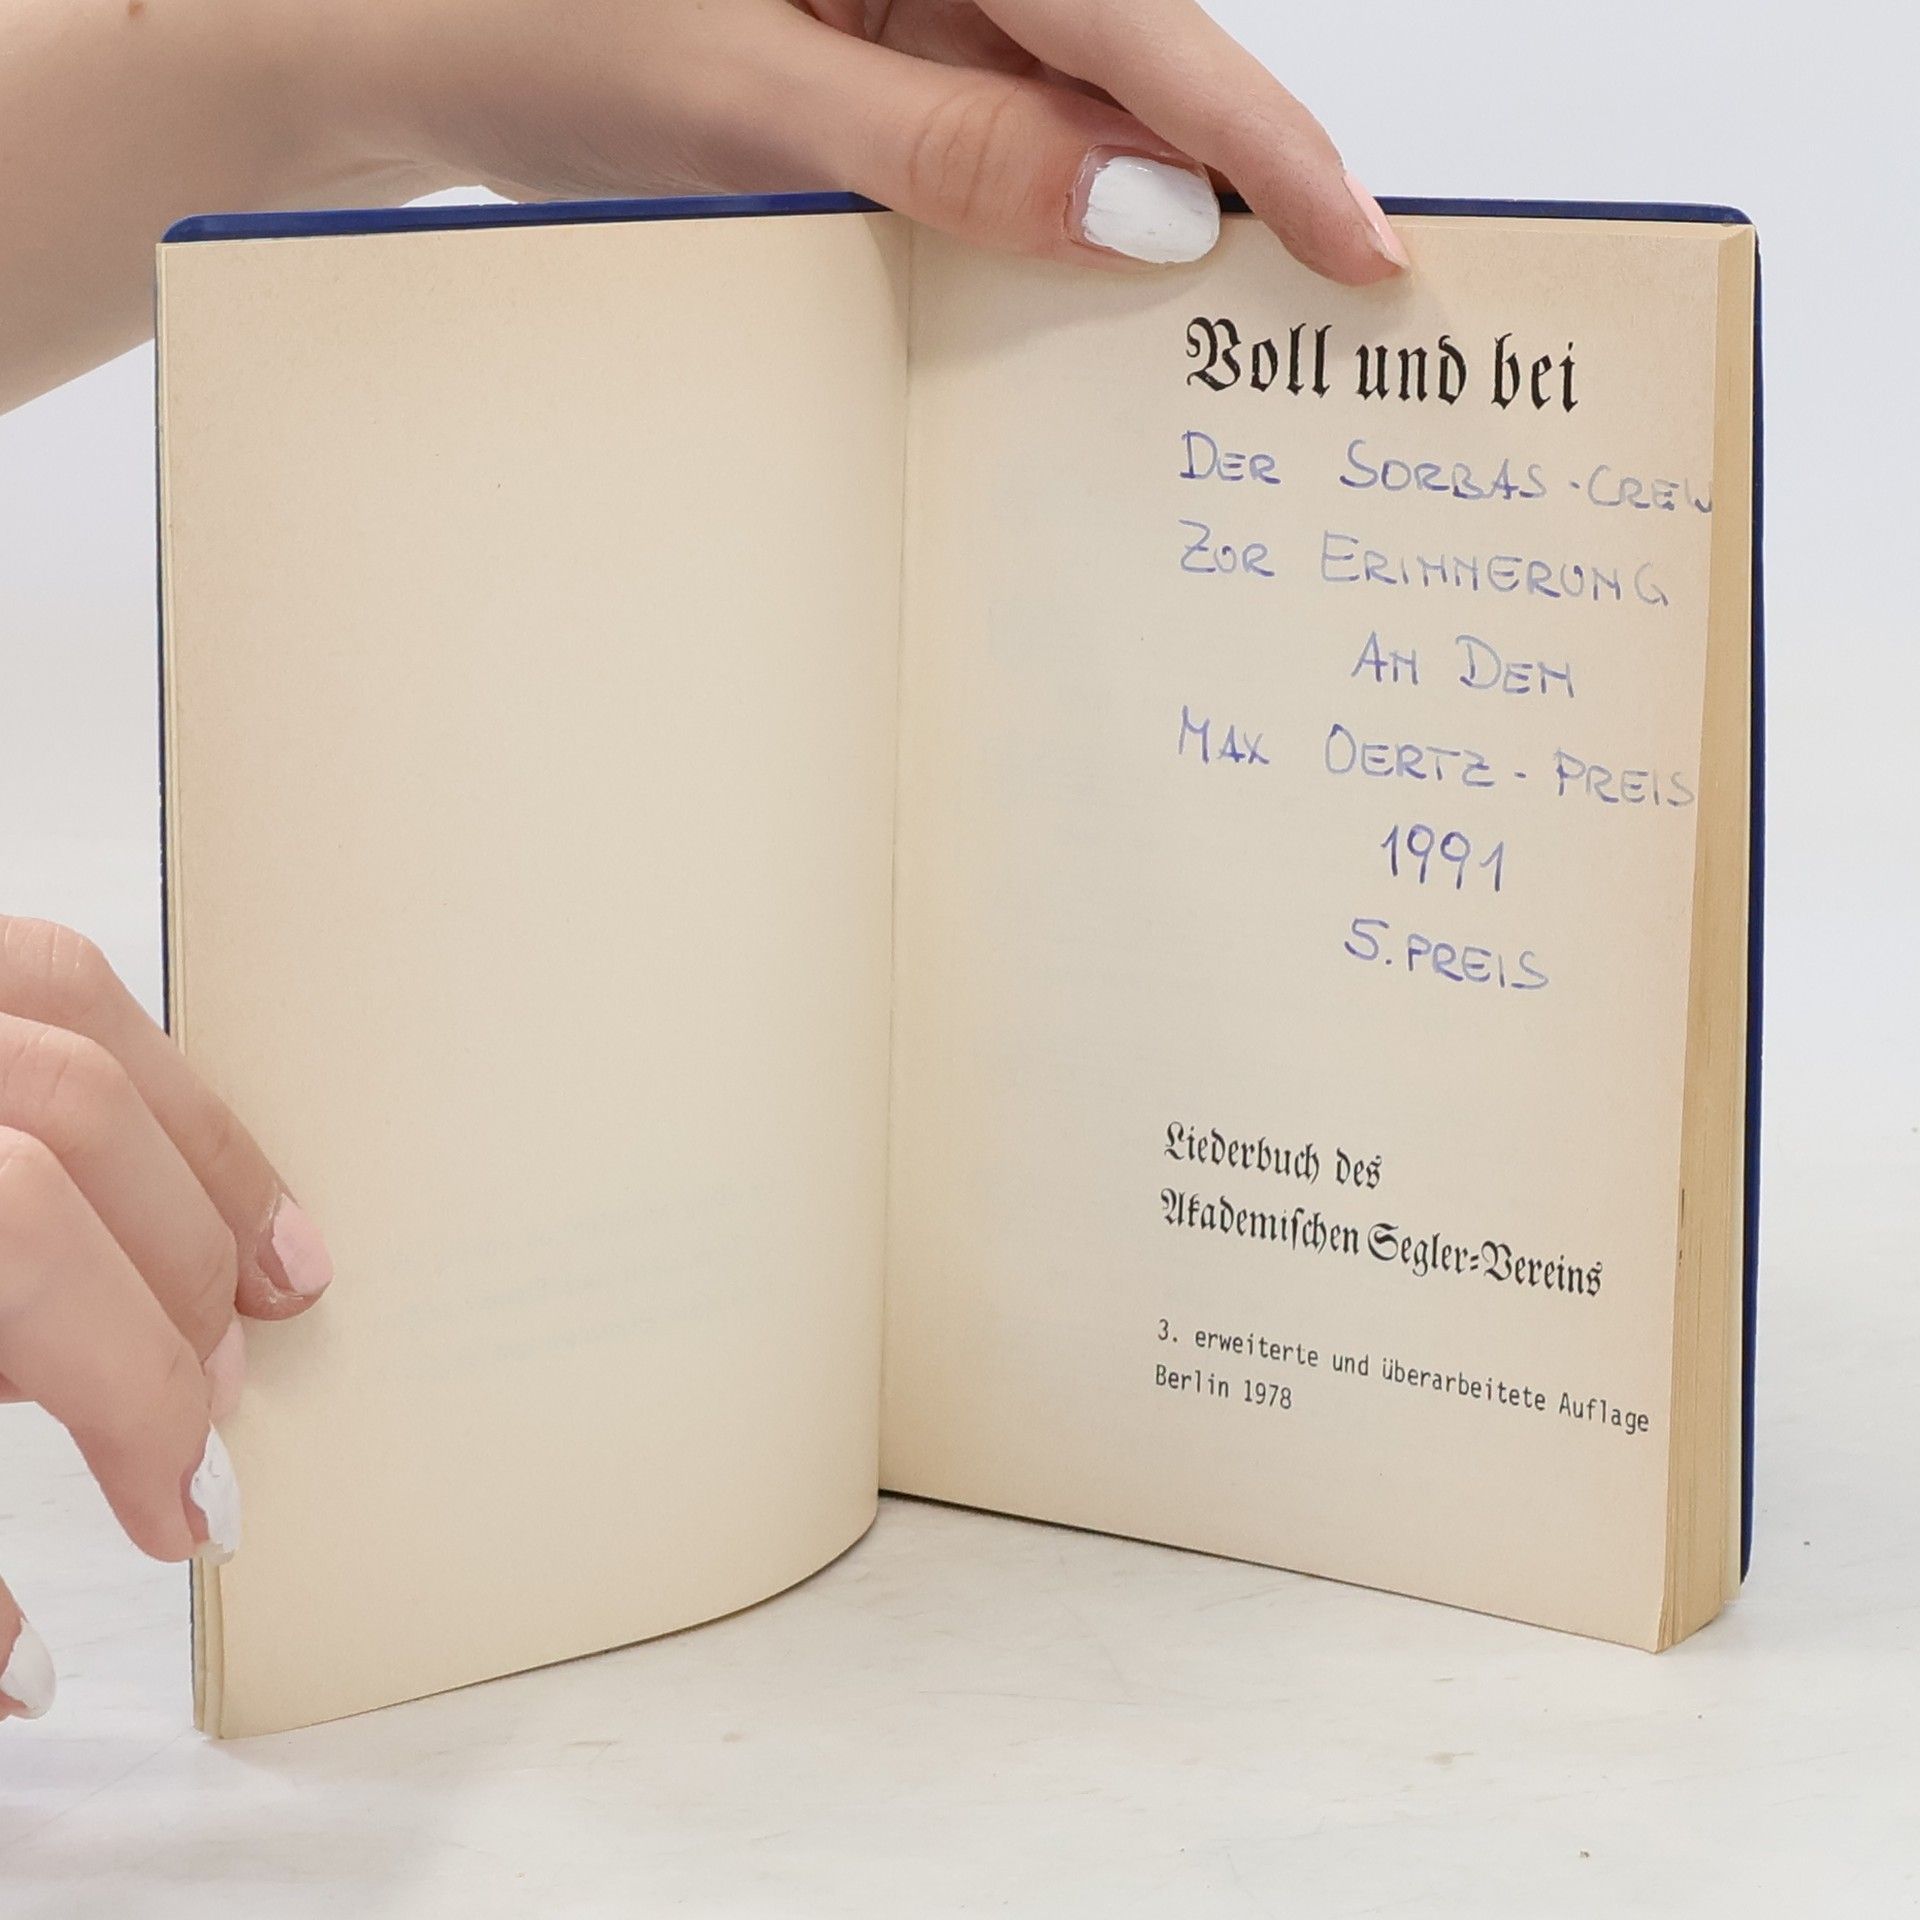 Voll und bei
DER SORBAS-CREW
ZUR ERINNERUNG
AN DEN
MAX OERTZ-PREIS
1991
5. PREIS
Liederbuch des
Akademischen Segler-Vereins
3. erweiterte und überarbeitete Auflage
Berlin 1978